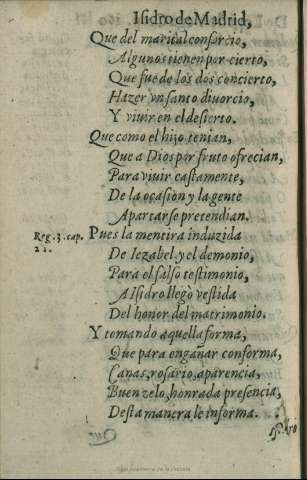 Isidro de Madrid,
Que del marital consorcio,
Algunos tienen por cierto,
Que fue de los dos concierto,
Hazer vn santo diuorcio,
Y viuir en el desierto.
Que como el hijo tenian,
Que a Dios por fruto ofrecian,
Para viuir castamente,
De la ocasion y la gente
Apartarse pretendian.
Reg. 3. cap. 21.
Pues la mentira induzida
De Iezabel y el demonio,
Para el falso testimonio,
A Isidro llegò vestida
Del honor del matrimonio.
Y tomando aquella forma,
Que para engañar conforma,
Canas, rosario, aparencia,
Buen zelo, honrada presencia,
Desta manera le informa.